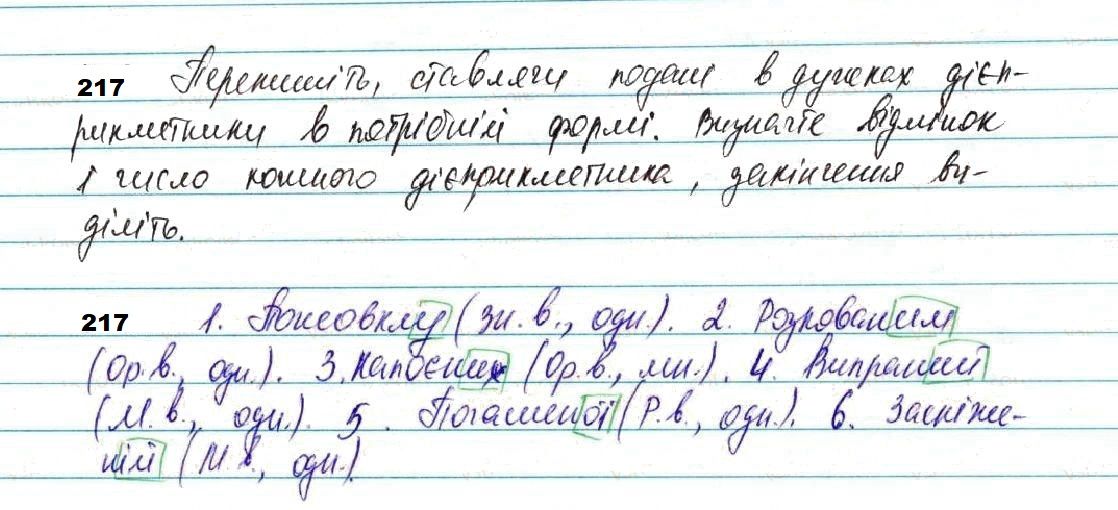 217 Перепишіть, ставлячи подані в дужках дієп-
рикметники в потрібній формі. Визначте відмінок
і число кожного дієприкметника, закінчення ви-
діліть.
217 1. Пожовклу (Зн. в., одн.). 2. Розкованим
(Ор. в., одн.). 3. Напоєних (Ор. в., мн.). 4. Випраний
(М. в., одн.). 5. Погашеної (Р. в., одн.). 6. Засніже-
ній (М. в., одн.).